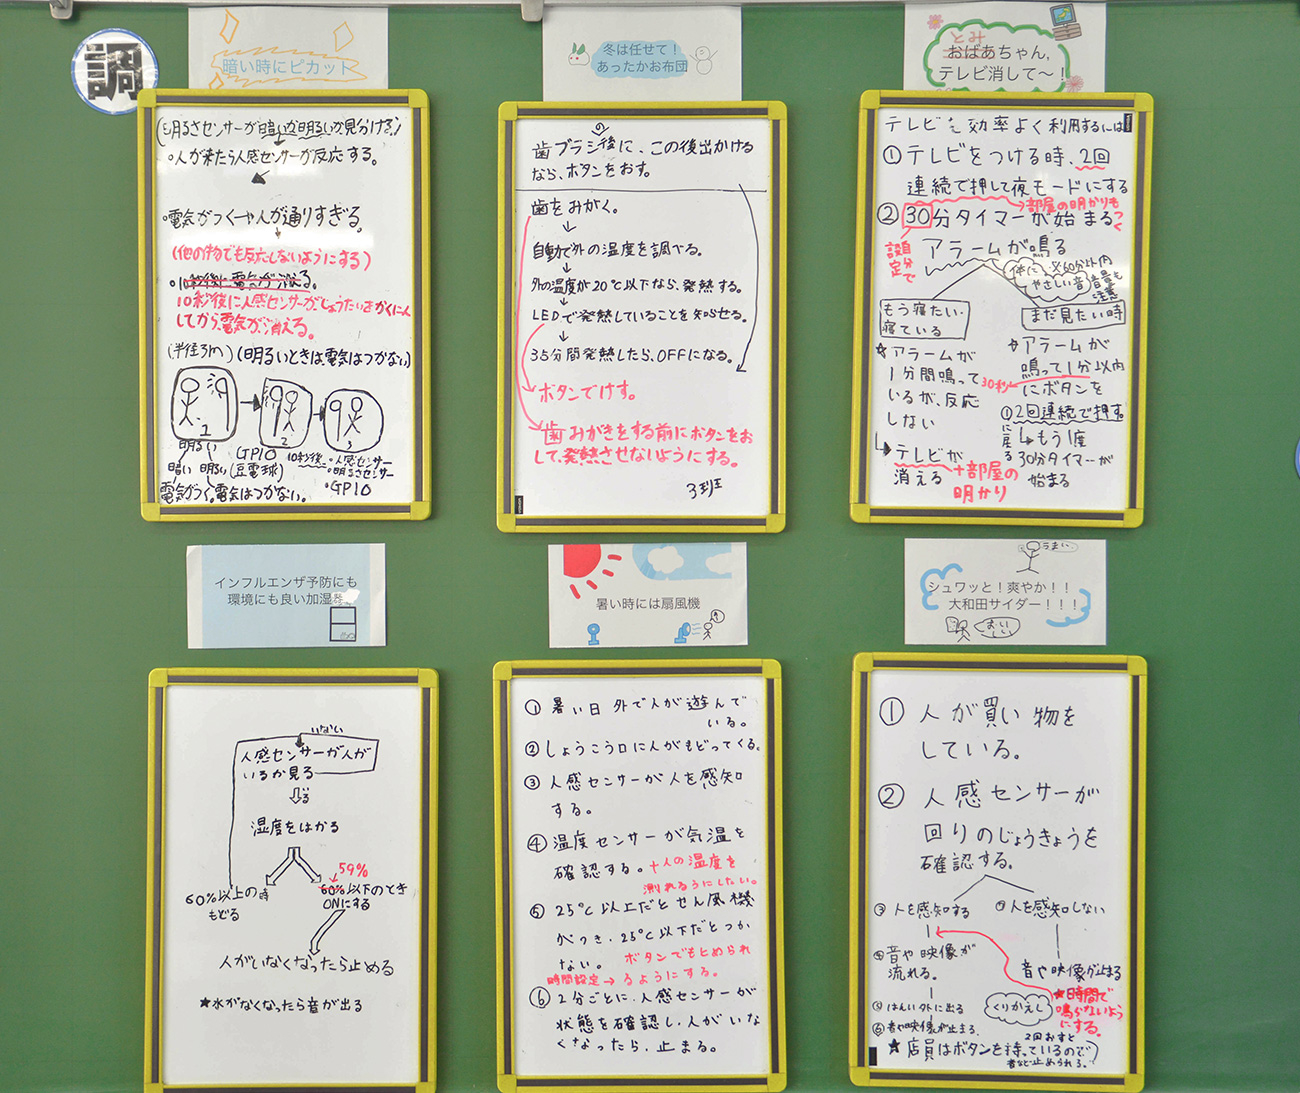 調
暗い時にピカット
(明るさセンサーが暗いか明るいか見分ける)
・人が来たら人感センサーが反応する。
・電気がつく→や人が通りすぎる。
(他の物でも反応しないようにする)
・10秒後に電気が消える。
10秒後に人感センサーがじょうたいをかくにん
してから、電気が消える。
(半径3m)(明るいときは、電気はつかない)
1
2
3
明るい
暗い
明るい
GPIO
(豆電球)
10秒後
・人感センサー
・明るさセンサー
・GPIO
電気がつく。電気はつかない。
冬は任せて！
あったかお布団
歯ブラシの後に、この後出かける
なら、ボタンをおす。
歯をみがく。
自動で外の温度を調べる。
外の温度が20℃以下なら、発熱する。
LEDで発熱していることを知らせる。
35分間発熱したら、OFFになる。
ボタンでけす。
歯みがきをする前にボタンをお
して、発熱させないようにする。
3班
とみ
おばあちゃん,
テレビ消して〜！
テレビを効率よく利用するには
①テレビをつける時、2回
連続で押して夜モードにする
→部屋の明かりも
②30分タイマーが始まる?
自分で
設定
アラームが鳴る
体に
やさしい音
※60分以内
音量も
注意
もう寝たい・
寝ている
まだ見たい時
★アラームが
1分間鳴って
いるが、反応
しない
アラームが
鳴って1分以内
30秒
にボタンを
①2回連続で押す。
に戻る
↳もう1度
30分タイマーが
始まる
↳テレビが
消える
+部屋の
明かり
インフルエンザ予防にも
環境にも良い加湿器
いない
人感センサーが人が
いるか見る
いる
湿度をはかる
59%
60%以上の時
もどる
60%以下のとき
ONにする
人がいなくなったら止める
★水がなくなったら音が出る
暑い時には扇風機
①暑い日外で人が遊んで
いる。
②しょうこう口に人がもどってくる。
③人感センサーが人を感知
する。
④温度センサーが気温を
確認する。+人の温度を
測れるうにしたい。
⑤25℃以上だとせん風機
がつき、25℃以下だとつか
ない。ボタンでもとめられ
時間設定→るようにする。
⑥2分ごとに、人感センサーが
状態を確認し、人がいな
くなったら、止まる。
うまい
シュワッと！爽やか！！
大和田サイダー！！！
おいしい
①人が買い物を
している。
②人感センサーが
回りのじょうきょうを
確認する。
③人を感知する
④人を感知しない
④音や映像が
流れる。
音や映像が止まる
⑤はんい外に出る
くりかえし
★時間で
鳴らないよう
にする。
⑥音や映像が止まる.
2回おすと
★店員はボタンを持っているので
音など止められる。